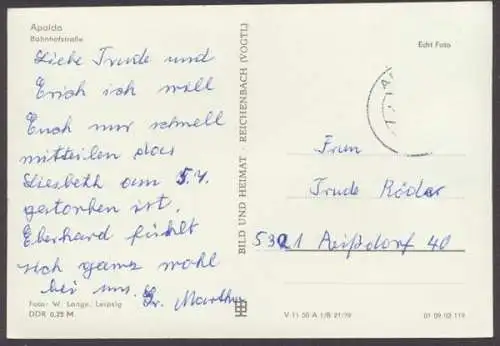 Apolda
Bahnhofstraße
Liebe Trude und
Erich ich will
Euch nur schnell
mitteilen das
Liesbeth am 5.4.
gestorben ist.
Eberhard fühlt
sich ganz wohl
bei uns. Gr. Martha
Foto: W. Lange, Leipzig
DDR 0,25 M
BILD UND HEIMAT · REICHENBACH (VOGTL)
Echt Foto
Frau
Trude Röder
5321 40
V 11 50 A 1/B 21/79
01 09 03 119